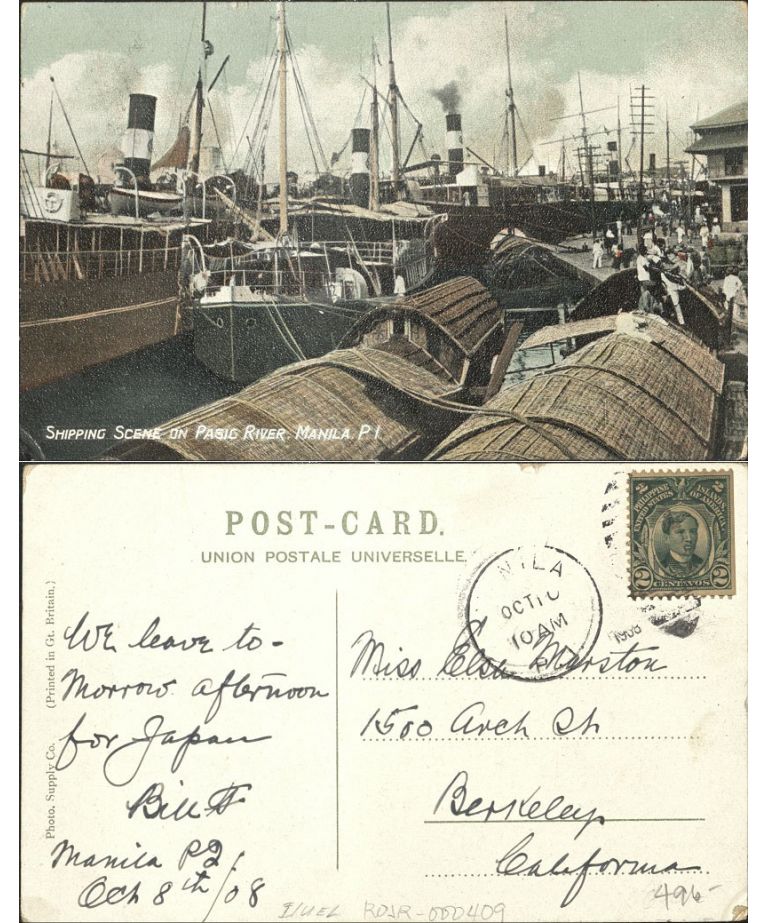 SHIPPING SCENE ON PASIG RIVER, MANILA. P.I.
POST-CARD.
UNION POSTALE UNIVERSELLE.
PHILIPPINE ISLANDS
UNITED STATES OF AMERICA
2 CENTAVOS 2
NILA
OCT 10
10 AM
P
1908
(Printed in Gt. Britain.)
Photo. Supply Co.
We leave to-
morrow afternoon
for Japan
Bill F
Manila PI
Oct 8th/08
Miss Elsa Marston
1500 Arch St
Berkeley
California
495-
RDJR-000409